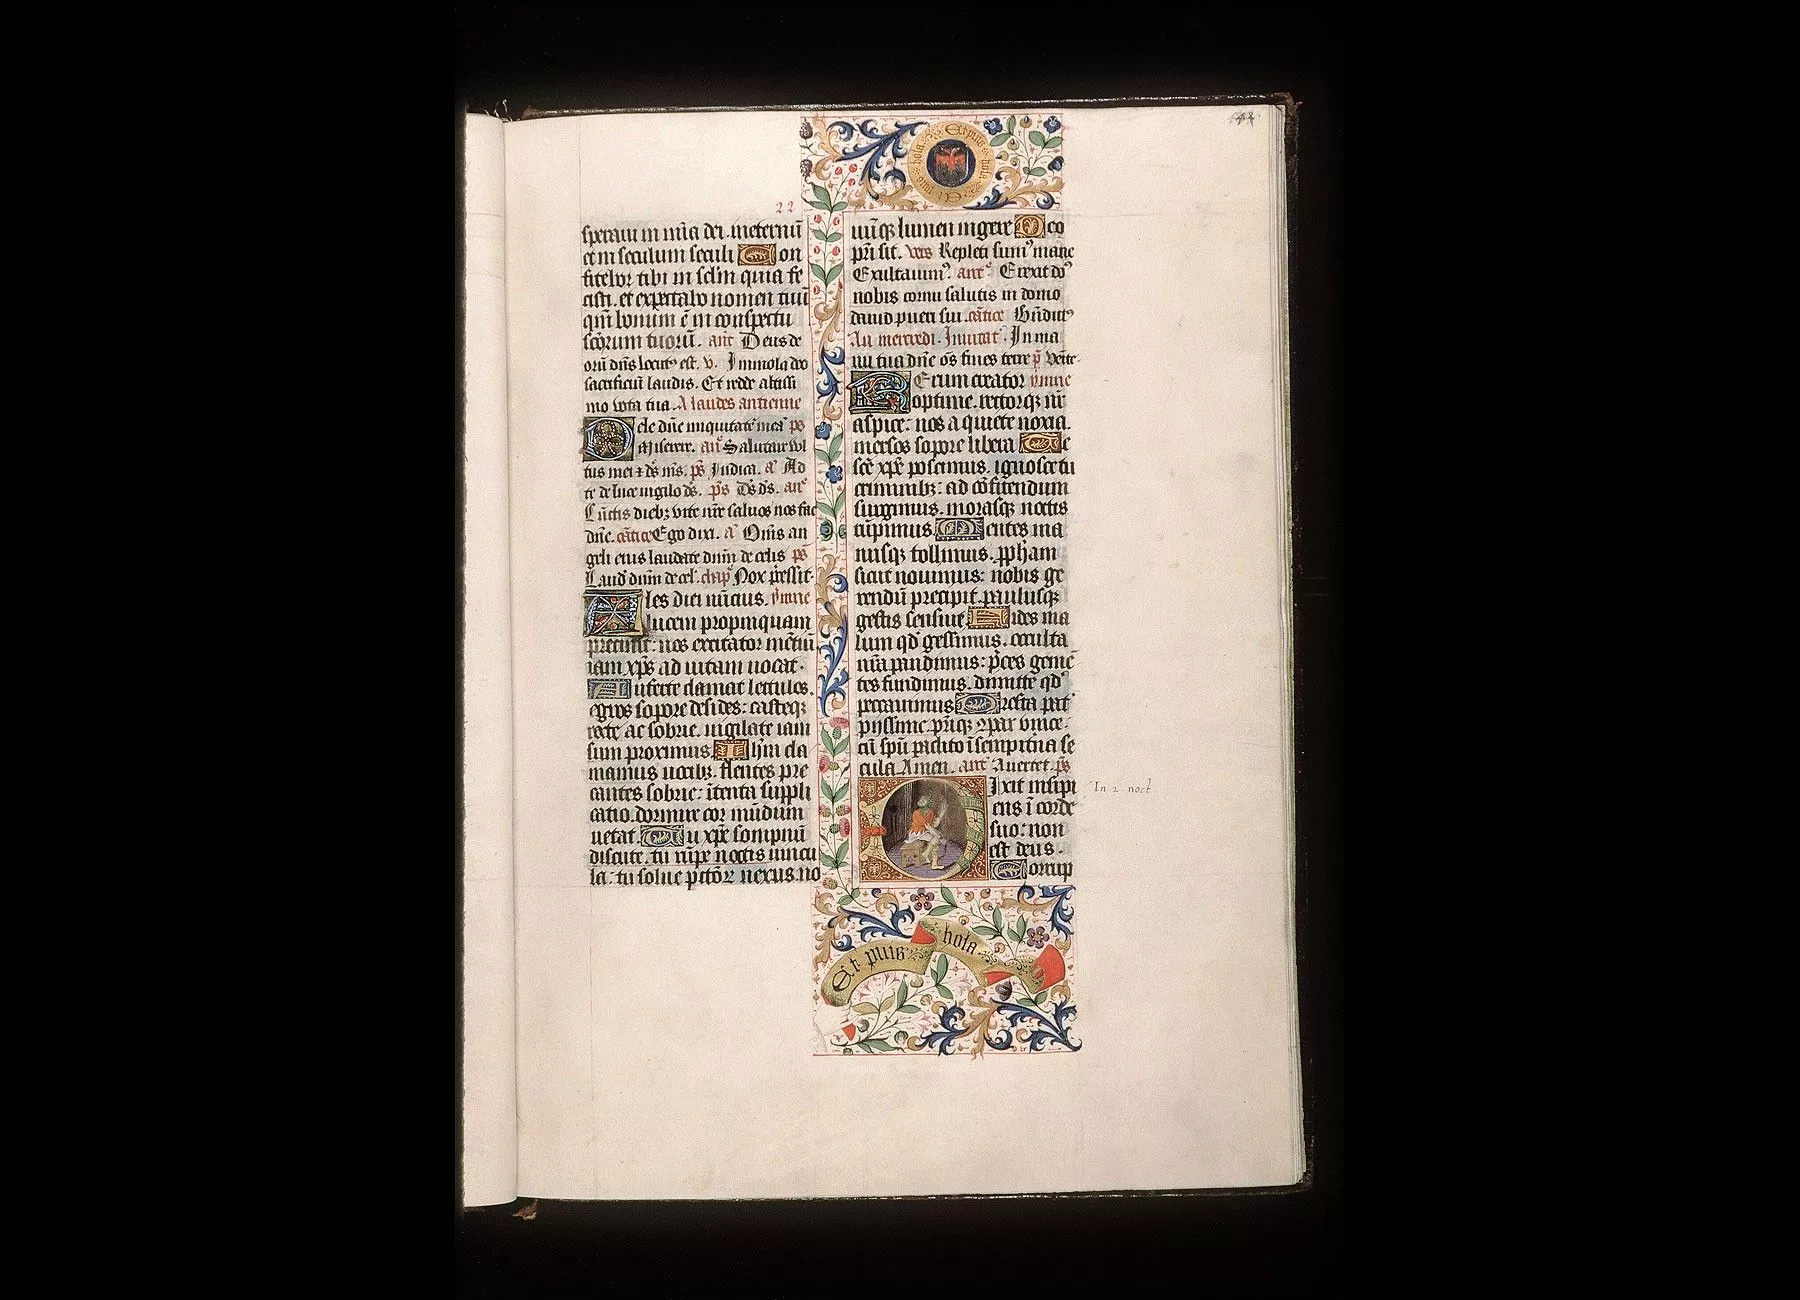 22
speraui in mīa dei. ineternū
et in seculum seculi Con
fitebor tibi in sclm quia fe
cisti. et expectabo nomen tuū
qm̄ bonum ē in conspectu
scōrum tuorū. anͭ Deus de
orū dn̄s locutꝰ est. v. Immola deo
sacrificiū laudis. Et redde altissi
mo vota tua. A laudes antienne
Dele dn̄e iniquitatē meā ps
Miserere. anͭ Salutare vl
tus mei ⁊ ds̄ ms̄. ps̄ Iudica. aͭ Ad
te de luce vigilo ds̄. ps̄ Ds̄ ds̄. anͭ
Cūctis diebꝫ vite nr̄e saluos nos fac
dn̄e. cātice Ego dixi. aͭ Om̄s an
geli eius laudate dn̄m de celis ps̄
Laud dn̄m de cel. chapͬ Nox p̄cessit.
Ales diei nūcius. ymne
lucem propinquam
precinit: nos excitator mētiū
iam xp̄s ad uitam uocat.
Auferte clamat lectulos.
egros sopore desides: casteqꝫ
recte ac sobrie. uigilate iam
sum proximus. Ihm̄ cla
mamus uocibꝫ. flentes pre
cantes sobrie: ītenta suppli
catio. dormire cor mūdum
uetat. Tu xp̄e sompnū
discute. tu rūpe noctis uincu
la: tu solue pctōꝝ nexus no
uūqꝫ lumen ingere Deo
pr̄i sit. vers Repleti sumꝰ mane
Exultauimꝰ. antͤ Erexit dꝰ
nobis cornu salutis in domo
dauid pueri sui. cātice Bn̄dictꝰ
Au mercredi. Inuitatͬ. In ma
nu tua dn̄e oēs fines terre p̄ Venite.
Rerum creator ymne
optime. rectorqꝫ nr̄
aspice: nos a quiete noxia.
mersos sopore libera Te
scē xp̄e poscimus. ignosce tu
criminibꝫ: ad cōfitendum
surgimus. morasqꝫ noctis
rūpimus. Mentes ma
nusqꝫ tollimus. pp̄ham
sicut nouimus: nobis ge
rendū precipit. paulusqꝫ
gestis censuit Uides ma
lum qd̓ gessimus. occulta
nr̄a pandimus: p̄ces gemē
tes fundimus. dimitte qd̓
peccauimus Presta pat̓
pijssime. pr̄iqꝫ ꝯpar vnice.
cū sp̄u paclito ī sempit̓na se
cula Amen. antͤ Auertet. ps̄
Dixit insipi
ens ī corde
suo: non
est deus.
Corrup
In 2 noct
Et puis hola